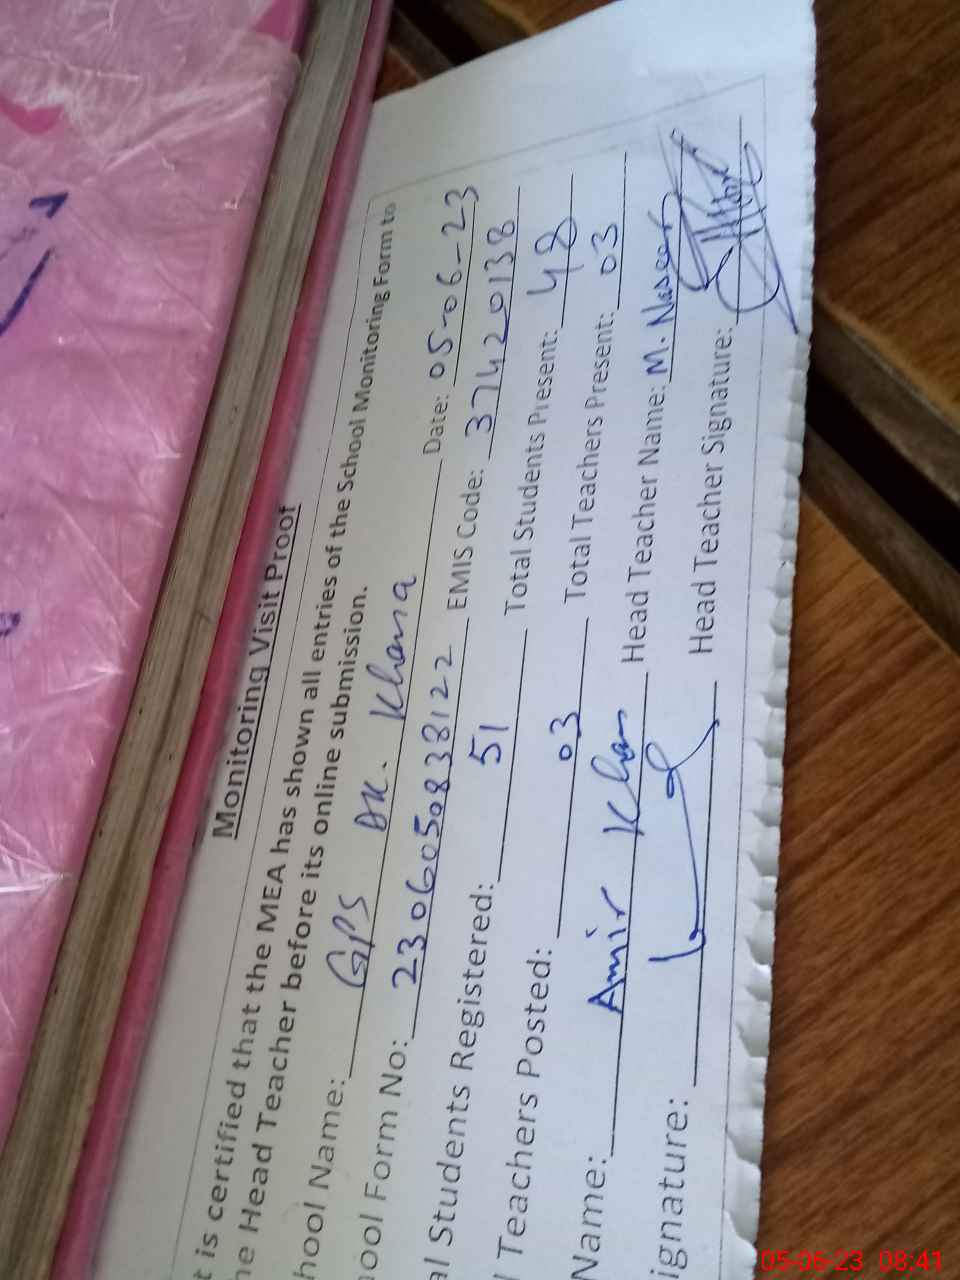 Monitoring Visit Proof
t is certified that the MEA has shown all entries of the School Monitoring Form to
he Head Teacher before its online submission.
hool Name: GPS AK. Khana Date: 05-06-23
hool Form No: 2306050838122 EMIS Code: 37420138
al Students Registered: 51 Total Students Present: 48
l Teachers Posted: 03 Total Teachers Present: 03
Name: Amir Khan Head Teacher Name: M. Naseer
ignature: Head Teacher Signature:
05-06-23 08:41